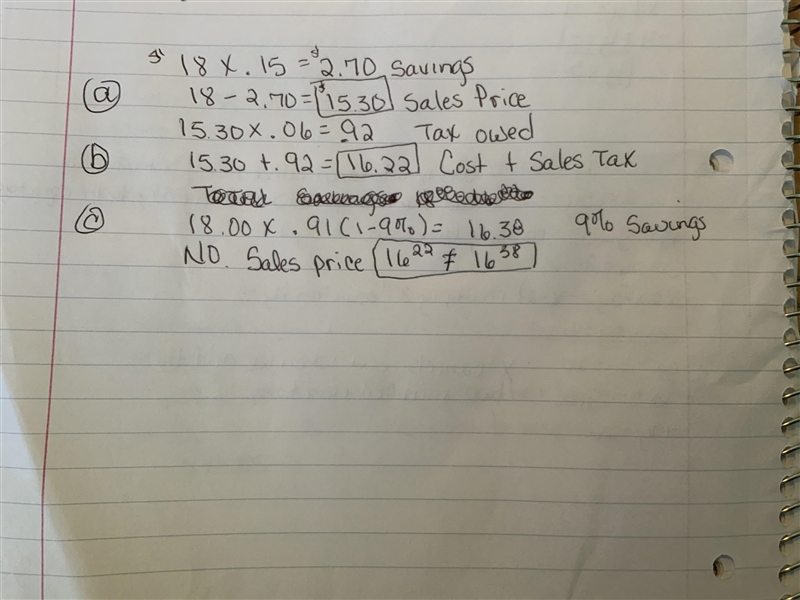 $18 x .15 = $2.70 Savings
(a) 18 - 2.70 = $15.30 Sales Price
15.30 x .06 = .92 Tax owed
(b) 15.30 + .92 = 16.22 Cost + Sales Tax
(c) 18.00 x .91 (1-9%) = 16.38 9% Savings
NO. Sales price 16²² ≠ 16³⁸